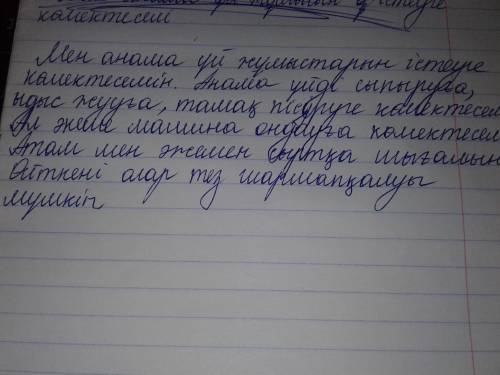 үй жұмысын істеуге
көмектесем
Мен анама үй жұмыстарын істеуге
көмектесемін. Анама үйді сыпыруға,
ыдыс жууға, тамақ пісіруге көмектесем
Әл әкеме машина оңдауға көмектесем
Атам мен әжемен сыртқа шығамын
Өйткені олар тез шаршапқалуы
мүмкін